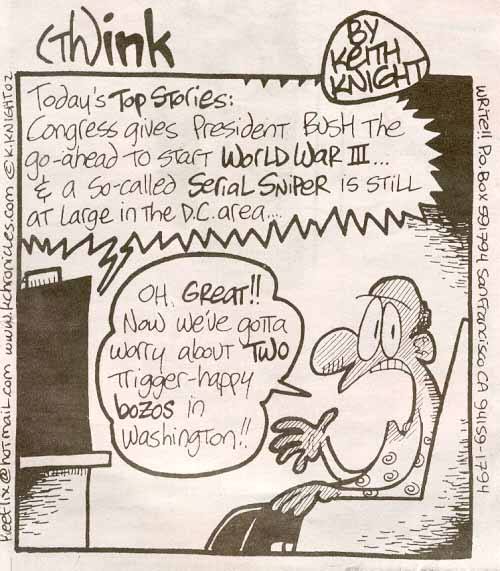 (TH)ink
BY
KEITH
KNIGHT
Today's Top Stories:
Congress gives President BUSH THE
go-ahead to start WORLD WAR III...
& a so-called SERIAL SNIPER is STILL
at Large in the D.C. area....
OH, GREAT!!
Now we've gotta
worry about TWO
Trigger-happy
bozos in
Washington!!
keeflix@hotmail.com www.Kchronicles.com © K.KNIGHT02
WRITE!! P.O. Box 591794 San Francisco CA 94159-1794